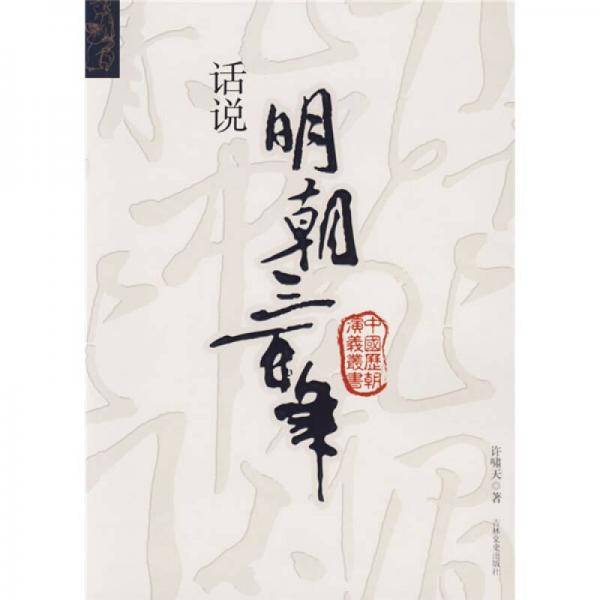 话说
明朝三百年
中國歷朝
演義叢書
许啸天◎著
吉林文史出版社